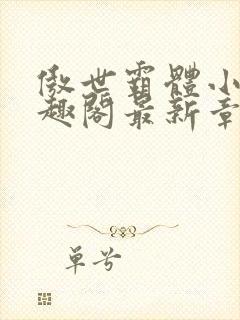 傲世霸體小
趣閣最新章
单兮